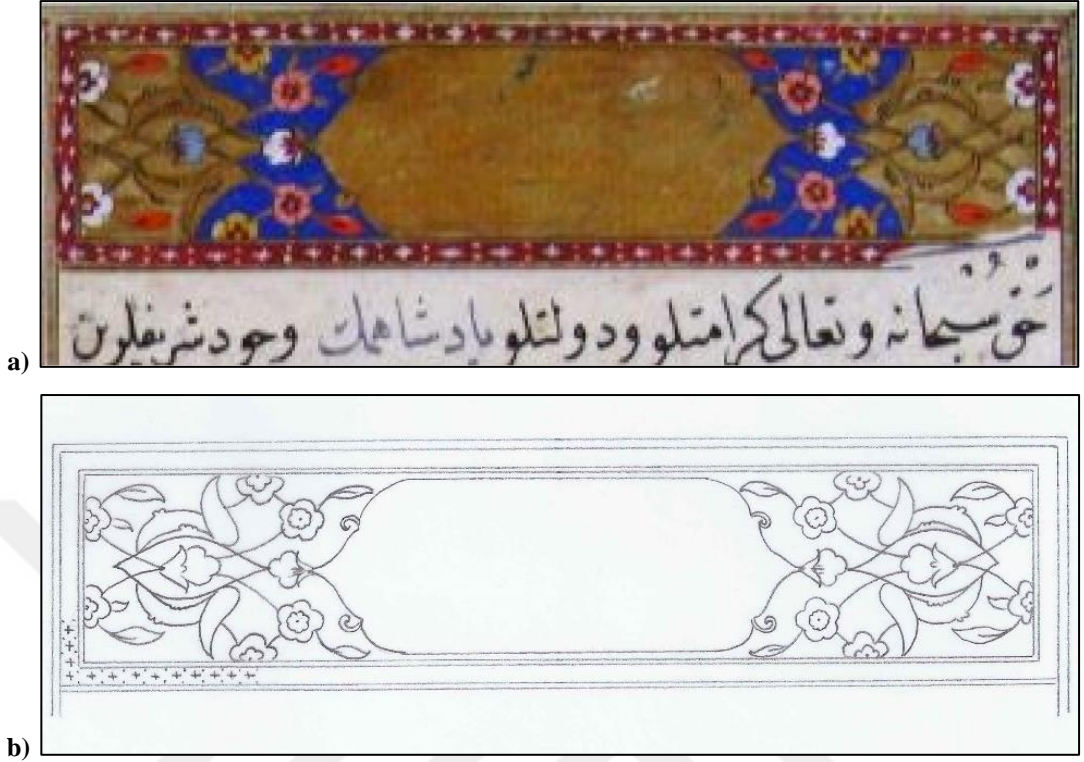 حق سبحانه وتعالى كرامتلو ودولتلو پادشاهمك وجود شريفلرين
a)
b)